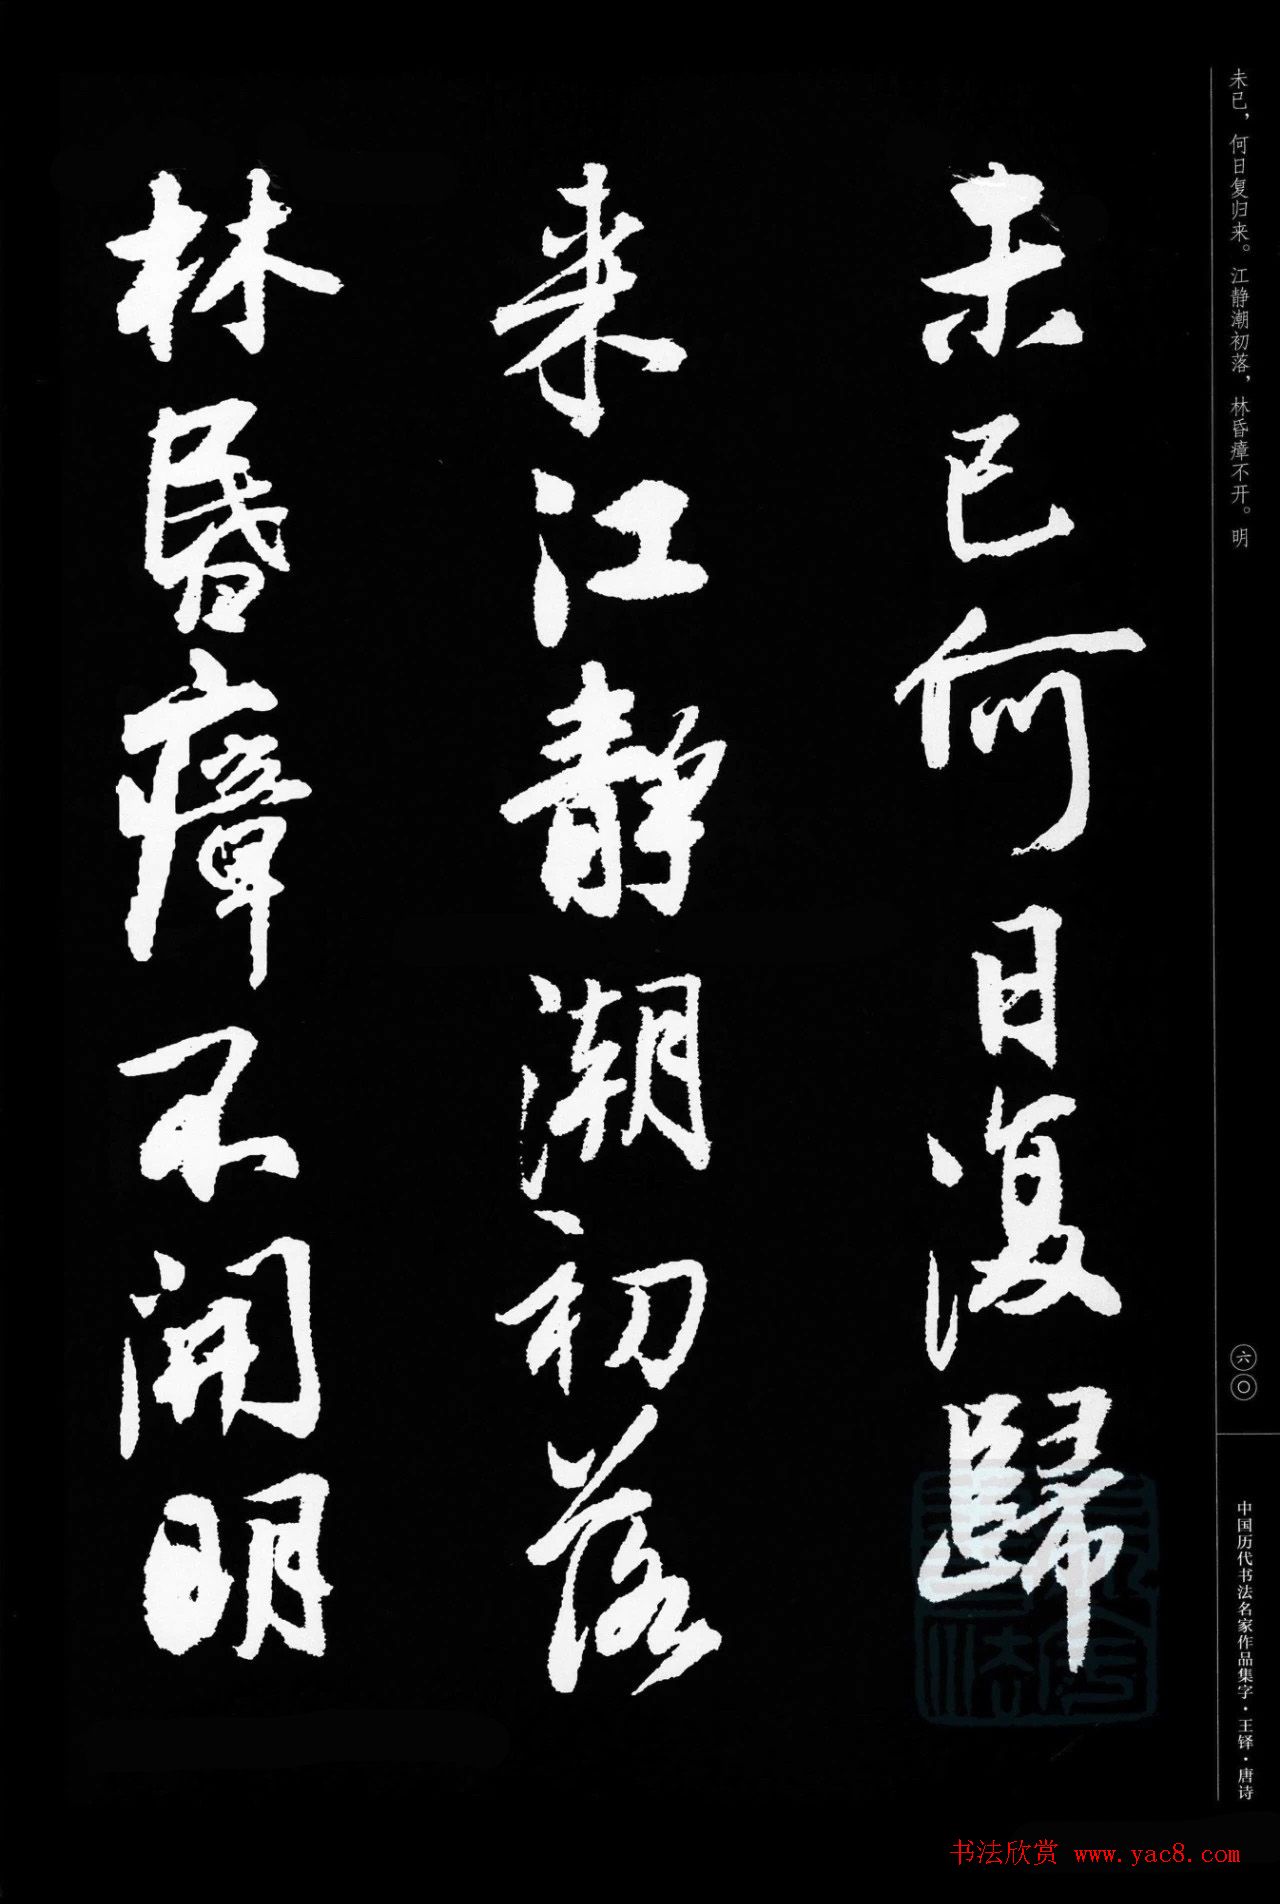 未已何日復歸
来江静潮初落
林昏瘴不開明
未已，何日复归来。江静潮初落，林昏瘴不开。明
六〇
中国历代书法名家作品集字·王铎·唐诗
书法欣赏 www.yac8.com